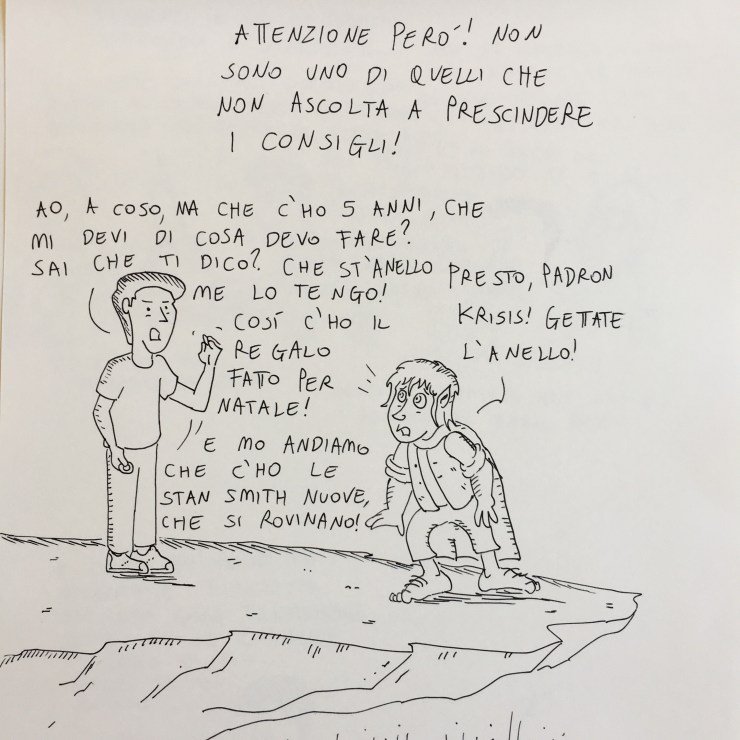 ATTENZIONE PERO'! NON
SONO UNO DI QUELLI CHE
NON ASCOLTA A PRESCINDERE
I CONSIGLI!
AO, A COSO, MA CHE C'HO 5 ANNI, CHE
MI DEVI DI COSA DEVO FARE?
SAI CHE TI DICO? CHE ST'ANELLO
ME LO TENGO!
COSÍ C'HO IL
REGALO
FATTO PER
NATALE!
E MO ANDIAMO
CHE C'HO LE
STAN SMITH NUOVE,
CHE SI ROVINANO!
PRESTO, PADRON
KRISIS! GETTATE
L'ANELLO!